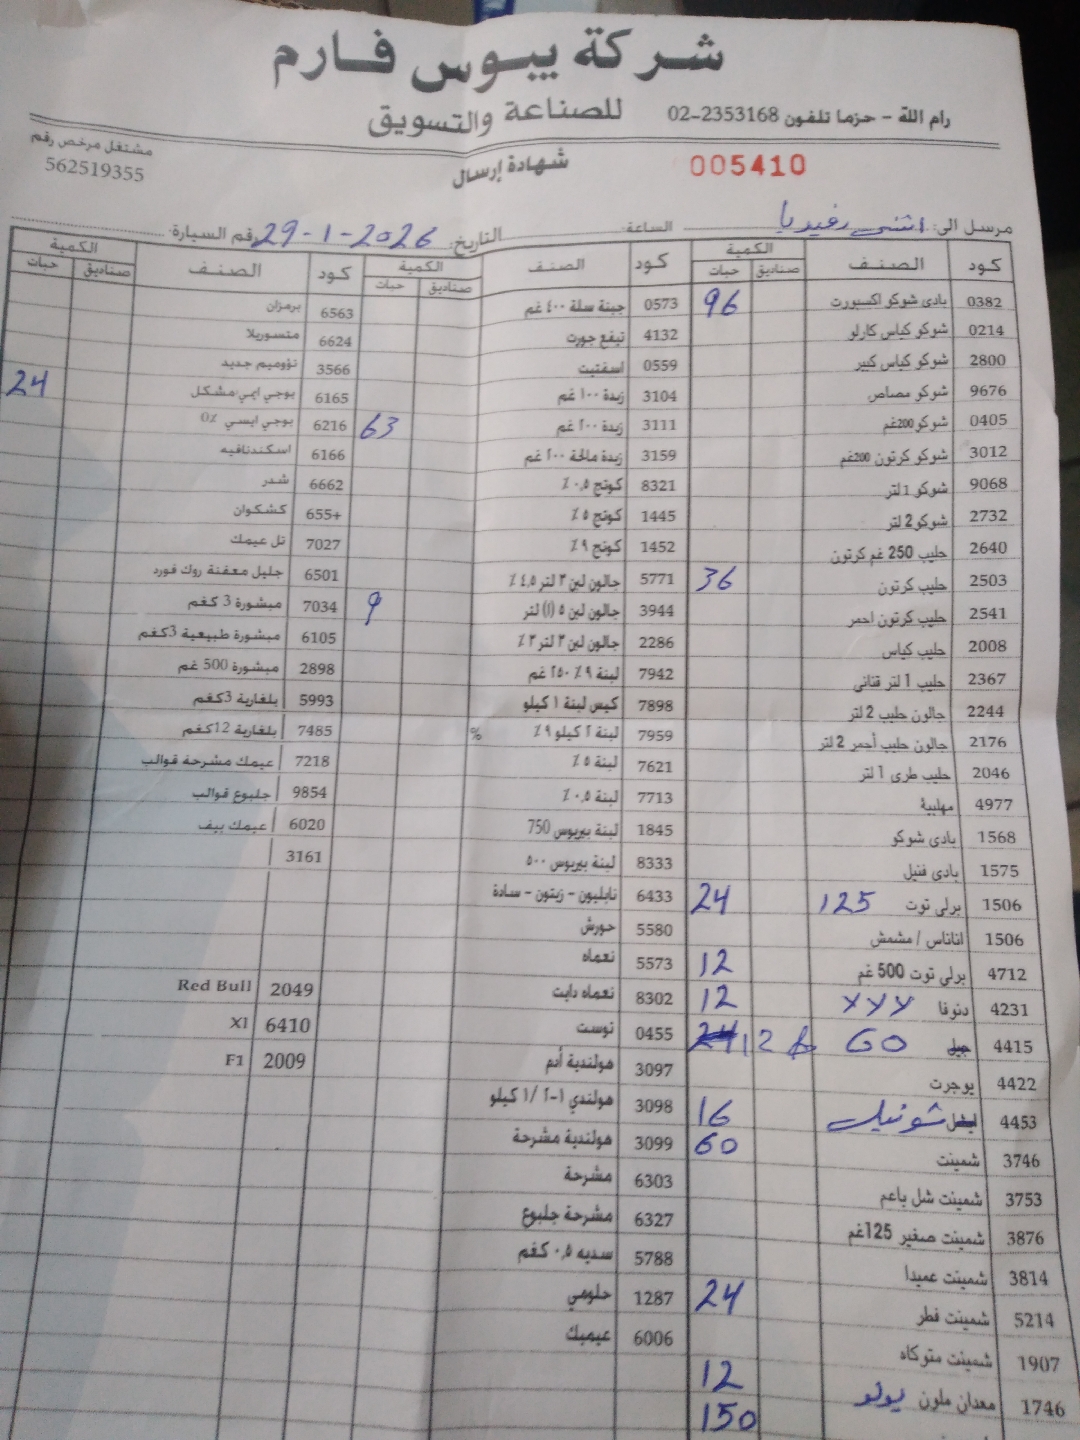 شركة يبوس فارم
للصناعة والتسويق
رام الله - حزما تلفون 02-2353168
مشتغل مرخص رقم
562519355
شهادة إرسال
005410
مرسل الى: رفيديا
الساعة:
التاريخ: 29-1-2026
رقم السيارة:
كود الصنف الكمية صناديق حبات
0382 بادي شوكو اكسبورت 96
0214 شوكو كياس كارلو
2800 شوكو كياس كبير
9676 شوكو مصاص
0405 شوكو 200غم
3012 شوكو كرتون 200غم
9068 شوكو 1 لتر
2732 شوكو 2 لتر
2640 حليب 250 غم كرتون
2503 حليب كرتون 36
2541 حليب كرتون احمر
2008 حليب كياس
2367 حليب 1 لتر قناني
2244 جالون حليب 2 لتر
2176 جالون حليب أحمر 2 لتر
2046 حليب طري 1 لتر
4977 مهلبية
1568 بادي شوكو
1575 بادي فنيل
1506 برلي توت 125 24
1506 اناناس / مشمش
4712 برلي توت 500 غم 12
4231 دنوفا 12
4415 جيل 60 24 12
4422 يوجرت
4453 16
3746 شمينت 60
3753 شمينت شل باعم
3876 شمينت صغير 125غم
3814 شمينت عميدا
5214 شمينت فطر 24
1907 شمينت متوكاه
1746 معدان ملون يولو 12
150
كود الصنف الكمية صناديق حبات
0573 جبنة سلة ٤٠٠ غم
4132 تيفع جورت
0559 اسفتيت
3104 زبدة ١٠٠ غم
3111 زبدة ٢٠٠ غم 63
3159 زبدة مالحة ٢٠٠ غم
8321 كوتج ٠,٥ ٪
1445 كوتج ٥ ٪
1452 كوتج ٩ ٪
5771 جالون لبن ٣ لتر ٤,٥ ٪
3944 جالون لبن ٥ (١) لتر 9
2286 جالون لبن ٣ لتر ٣ ٪
7942 لبنة ٩ ٪ ٢٥٠ غم
7898 كيس لبنة ١ كيلو
7959 لبنة ٢ كيلو ٩ ٪ %
7621 لبنة ٥ ٪
7713 لبنة ٠,٥ ٪
1845 لبنة بيربوس 750
8333 لبنة بيربوس ٥٠٠
6433 نابليون - زيتون - سادة
5580 حورش
5573 نعماه
8302 نعماه دايت
0455 توست
3097 هولندية أدم
3098 هولندي ١-٢ /١ كيلو
3099 هولندية مشرحة
6303 مشرحة
6327 مشرحة جلبوع
5788 سديه ٠,٥ كغم
1287 حلومي
6006 عيميك
كود الصنف الكمية صناديق حبات
6563 برمزان
6624 متسوريلا
3566 نؤوميم جديد
6165 يوجي ايمي مشكل 24
6216 يوجي ايسي ٠٪
6166 اسكندنافيه
6662 شدر
655+ كشكوان
7027 تل عيمك
6501 جليل معفنة روك فورد
7034 مبشورة 3 كغم
6105 مبشورة طبيعية 3كغم
2898 مبشورة 500 غم
5993 بلغارية 3كغم
7485 بلغارية 12كغم
7218 عيمك مشرحة قوالب
9854 جلبوع قوالب
6020 عيمك بيف
3161
2049 Red Bull
6410 Xl
2009 F1